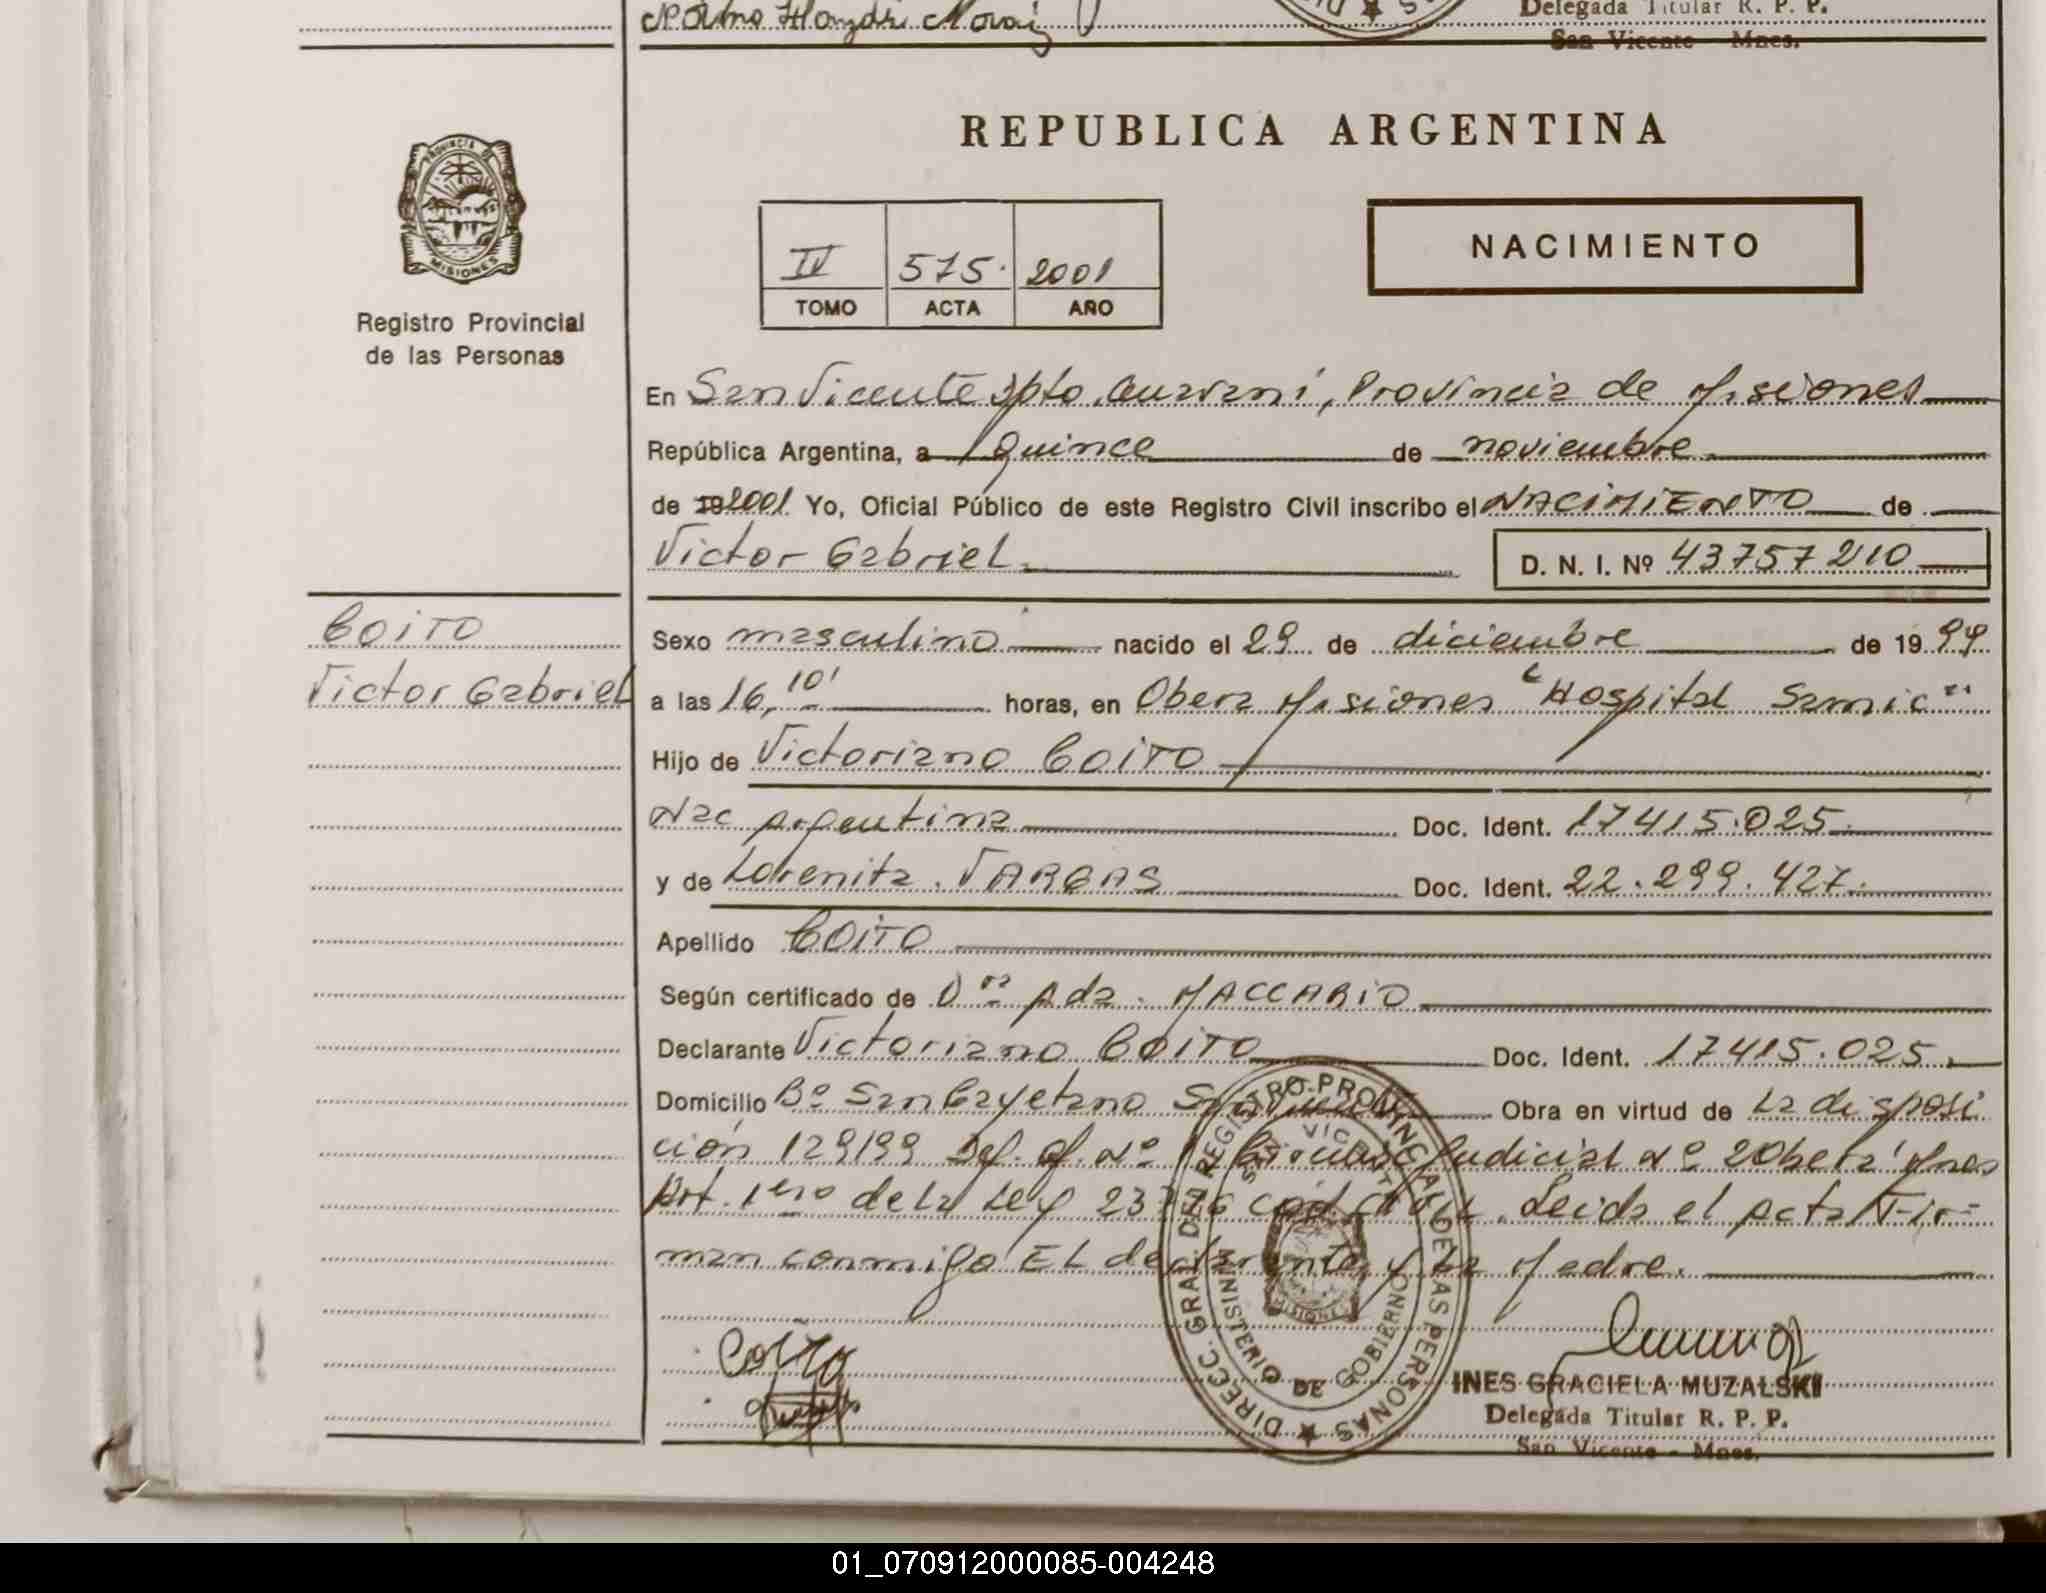 Delegada Titular R. P. P.
San Vicente - Mnes.
REPUBLICA ARGENTINA
PROVINCIA DE
MISIONES
Registro Provincial
de las Personas
IV 575. 2001
TOMO ACTA AÑO
NACIMIENTO
En San Vicente Dpto. Guaraní, Provincia de Misiones
República Argentina, a quince de noviembre
de 192001 Yo, Oficial Público de este Registro Civil inscribo el NACIMIENTO de
Victor Gabriel D. N. I. Nº 43757210
COITO
Victor Gabriel
Sexo masculino nacido el 29 de diciembre de 1994
a las 16,10' horas, en Obera Misiones "Hospital Samic"
Hijo de Victoriano COITO
Nac Argentina Doc. Ident. 17415.025
y de Lorenita VARGAS Doc. Ident. 22.299.427.
Apellido COITO
Según certificado de Dra Ada. MACCARIO
Declarante Victoriano COITO Doc. Ident. 17415.025.
Domicilio Bº San Cayetano San Vicente Obra en virtud de La disposi
ción 129199 Def. Of. Nº 1 Judicial Nº 2 Oberá Mnes
Art. 1ero de la Ley 23776 Leida el Acta Fir=
man conmigo EL declarante y La Madre.
Coito
DIRECC. GRAL. DEL REGISTRO PROVINCIAL DE LAS PERSONAS
SAN VICENTE
MINISTERIO DE GOBIERNO
MISIONES
INES GRACIELA MUZALSKI
Delegada Titular R. P. P.
San Vicente - Mnes.
01_070912000085-004248